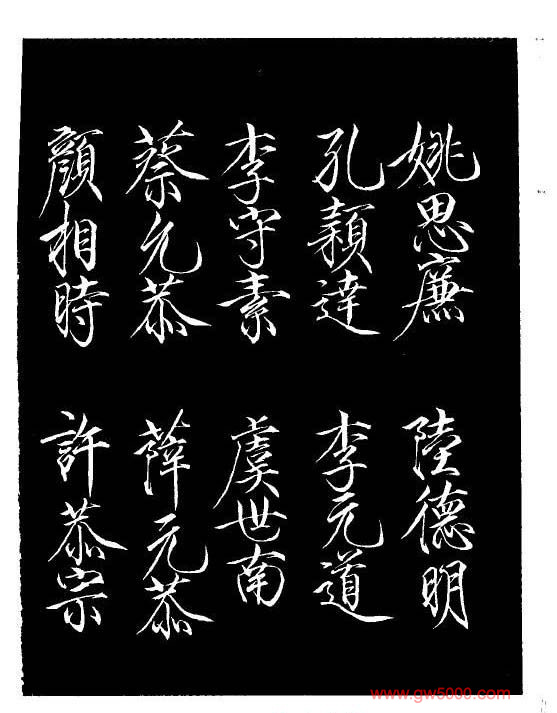 姚思廉 陸德明
孔穎達 李元道
李守素 虞世南
蔡允恭 薛元恭
顏相時 許恭宗
www.gw5000.com